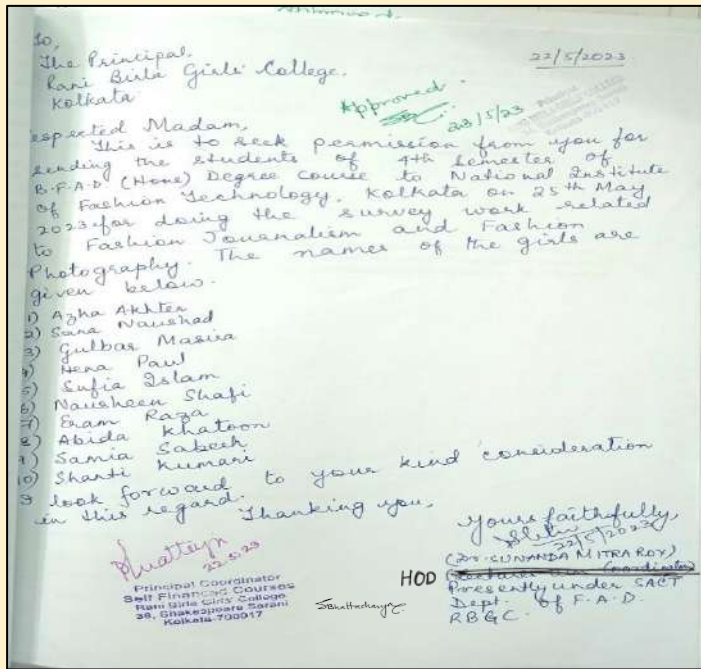 To,
The Principal.
Rani Birla Girls' College.
Kolkata
22/5/2023
Approved.
23/5/23
espected Madam,
This is to seek permission from you for
sending the students of 4th Semester of
B.F.A.D. (Hons) Degree course to National Institute
of Fashion Technology, Kolkata on 25th May
2023 for doing the survey work related
to Fashion Journalism and Fashion
Photography. The names of the girls are
given below.
1) Azha Akhter
2) Sana Naushad
3) Gulbar Masira
4) Hena Paul
5) Sufia Islam
6) Nausheen Shafi
7) Eram Raza
8) Abida Khatoon
9) Samia Sabeeh
10) Shanti Kumari
I look forward to your kind consideration
in this regard.
Thanking you,
Yours faithfully,
22/5/2023
(Dr. SUNANDA MITRA ROY)
HOD
Presently under SACT
Dept. of F.A.D.
RBGC.
22.5.23
Principal Coordinator
Self Financed Courses
Rani Birla Girls' College
38, Shakespeare Sarani
Kolkata-700017
SBhattacharya